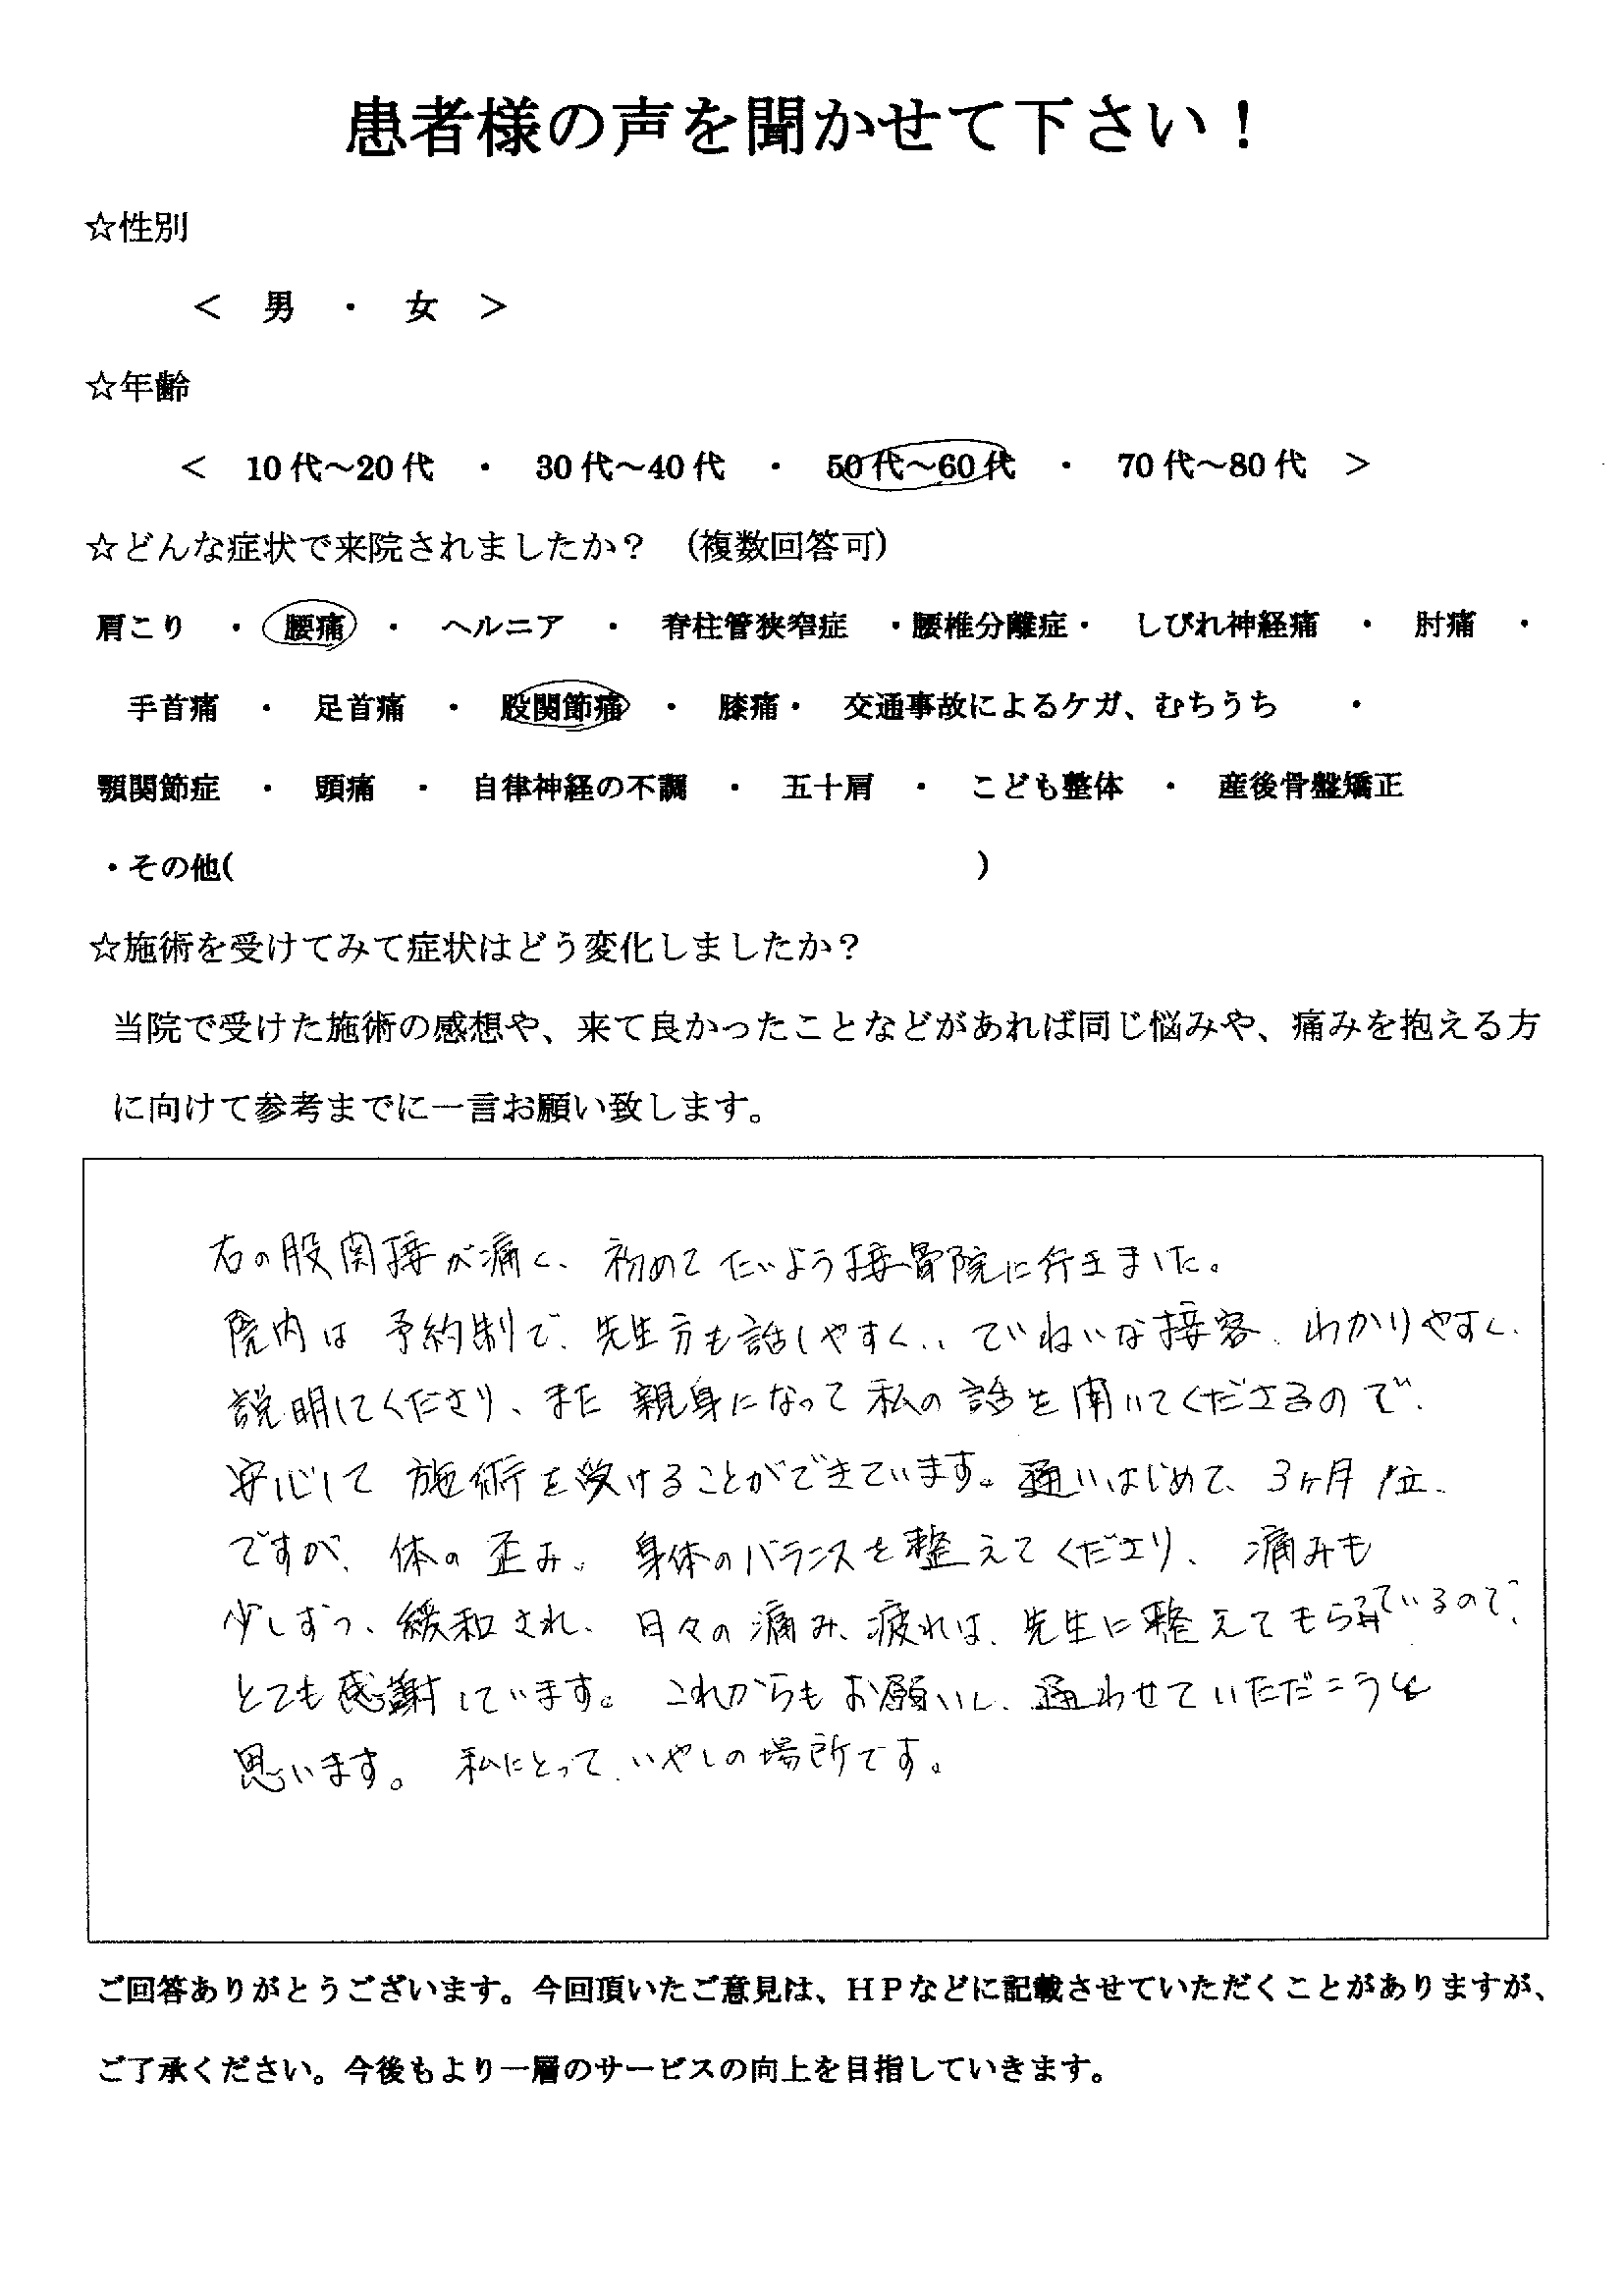 患者様の声を聞かせて下さい！
☆性別
＜　男　・　女　＞
☆年齢
＜　10代～20代　・　30代～40代　・　50代～60代　・　70代～80代　＞
☆どんな症状で来院されましたか？　(複数回答可)
肩こり　・　腰痛　・　ヘルニア　・　脊柱管狭窄症　・腰椎分離症・　しびれ神経痛　・　肘痛　・
手首痛　・　足首痛　・　股関節痛　・　膝痛・　交通事故によるケガ、むちうち　　・
顎関節症　・　頭痛　・　自律神経の不調　・　五十肩　・　こども整体　・　産後骨盤矯正
・その他(　　　　　　　　　　)
☆施術を受けてみて症状はどう変化しましたか？
当院で受けた施術の感想や、来て良かったことなどがあれば同じ悩みや、痛みを抱える方
に向けて参考までに一言お願い致します。
右の股関接が痛く、初めてたいよう接骨院に行きました。
院内は予約制で、先生方も話しやすく、、ていねいな接客、わかりやすく、
説明してくださり、また親身になって私の話を聞いてくださるので、
安心して施術を受けることができています。通いはじめて、3ヶ月位、
ですが、体の歪み、身体のバランスを整えてくださり、痛みも
少しずつ、緩和され、日々の痛み、疲れは、先生に整えてもらっているので、
とても感謝しています。これからもお願いし、通わせていただこうと
思います。私にとって、いやしの場所です。
ご回答ありがとうございます。今回頂いたご意見は、ＨＰなどに記載させていただくことがありますが、
ご了承ください。今後もより一層のサービスの向上を目指していきます。